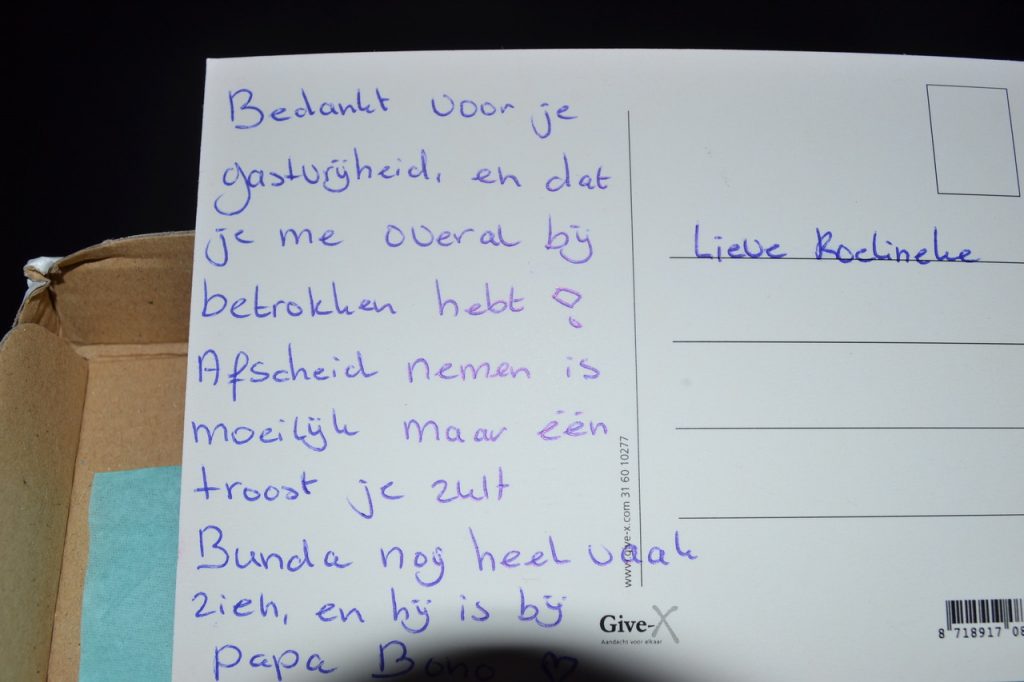 Bedankt voor je
gastvrijheid, en dat
je me overal bij
betrokken hebt !
Afscheid nemen is
moeilijk maar één
troost je zult
Bunda nog heel vaak
zien, en hij is bij
papa Bono ♡
Lieve Roelineke
www.give-x.com 31 60 10277
Give-X
Aandacht voor elkaar
8 718917 08